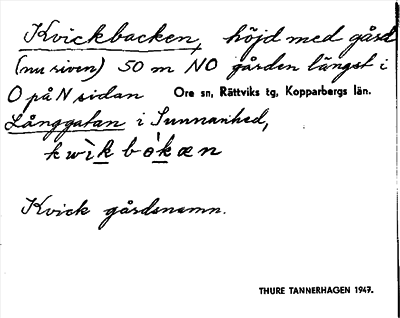 Kvickbacken, höjd med gård
(nu riven) 50 m NO gården längst i
O på N sidan Ore sn, Rättviks tg, Kopparbergs län.
Långgatan i Sunnanhed,
kwìkbòkæn
Kvick gårdsnamn.
THURE TANNERHAGEN 1947.